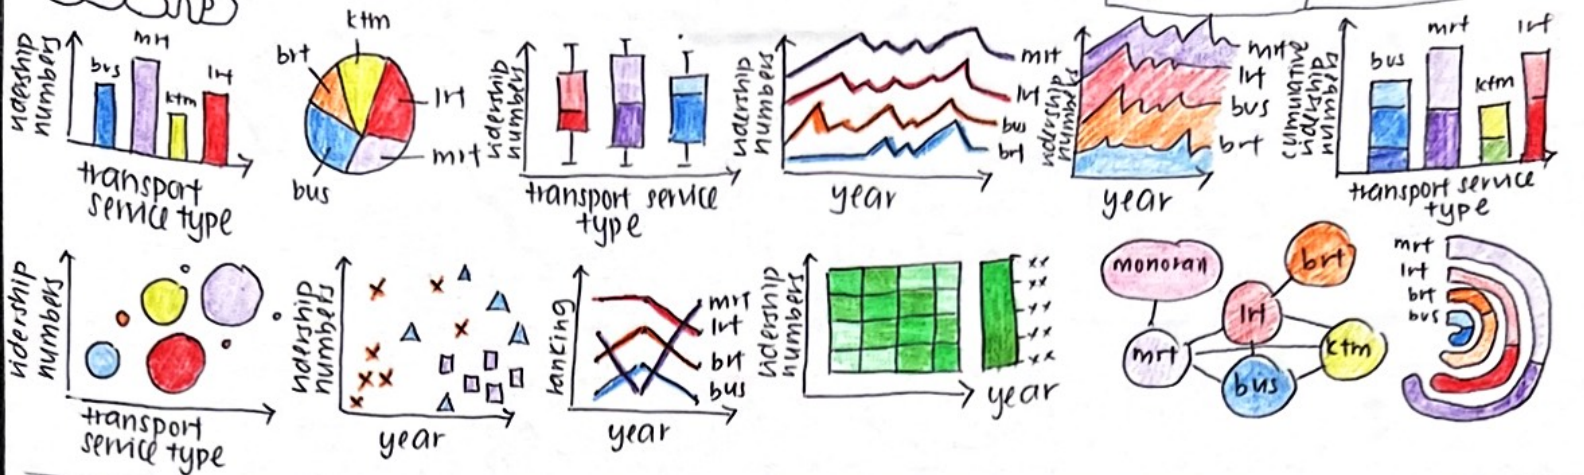 ridership
numbers
bus
mrt
ktm
lrt
transport
service type
ktm
brt
lrt
mrt
bus
ridership
numbers
transport service
type
ridership
numbers
mrt
lrt
bus
brt
year
ridership
numbers
mrt
lrt
bus
brt
year
ridership
bus
mrt
ktm
lrt
transport service
type
ridership
numbers
transport
service type
ridership
numbers
year
ranking
mrt
lrt
brt
bus
year
ridership
numbers
xx
xx
xx
xx
xx
year
monorail
brt
lrt
mrt
ktm
bus
mrt
lrt
brt
bus